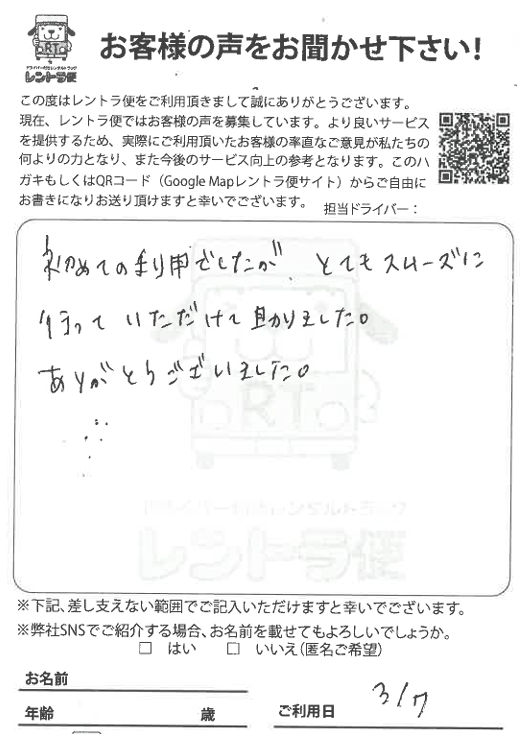 お客様の声をお聞かせ下さい!
RT
ドライバー付きレンタルトラック
レントラ便
この度はレントラ便をご利用頂きまして誠にありがとうございます。
現在、レントラ便ではお客様の声を募集しています。より良いサービス
を提供するため、実際にご利用頂いたお客様の率直なご意見が私たちの
何よりの力となり、また今後のサービス向上の参考となります。このハ
ガキもしくはQRコード(Google Mapレントラ便サイト)からご自由に
お書きになりお送り頂けますと幸いでございます。
担当ドライバー:
初めての利用でしたが、とてもスムーズに
行って いただけて助かりました。
ありがとうございました。
RT
ドライバー付きレンタルトラック
レントラ便
※下記、差し支えない範囲でご記入いただけますと幸いでございます。
※弊社SNSでご紹介する場合、お名前を載せてもよろしいでしょうか。
□ はい □ いいえ(匿名ご希望)
お名前
年齢 歳
ご利用日 3/7